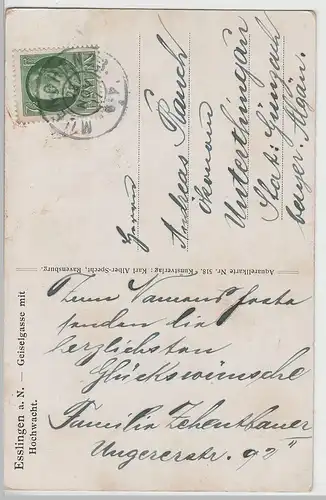 Esslingen a. N. — Geiselgasse mit
Hochwacht.
Zum Namensfeste
senden die
herzlichsten
Glückswünsche
Familie Zehentbauer
Ungererstr. 92 II
Aquarellkarte Nr. 518. Kunstverlag: Karl Alber-Specht, Ravensburg.
BAYERN
Herrn
Andreas Rauch
Ökonom
Unterthingau
Stat: Günzach
bayer. Algäu.